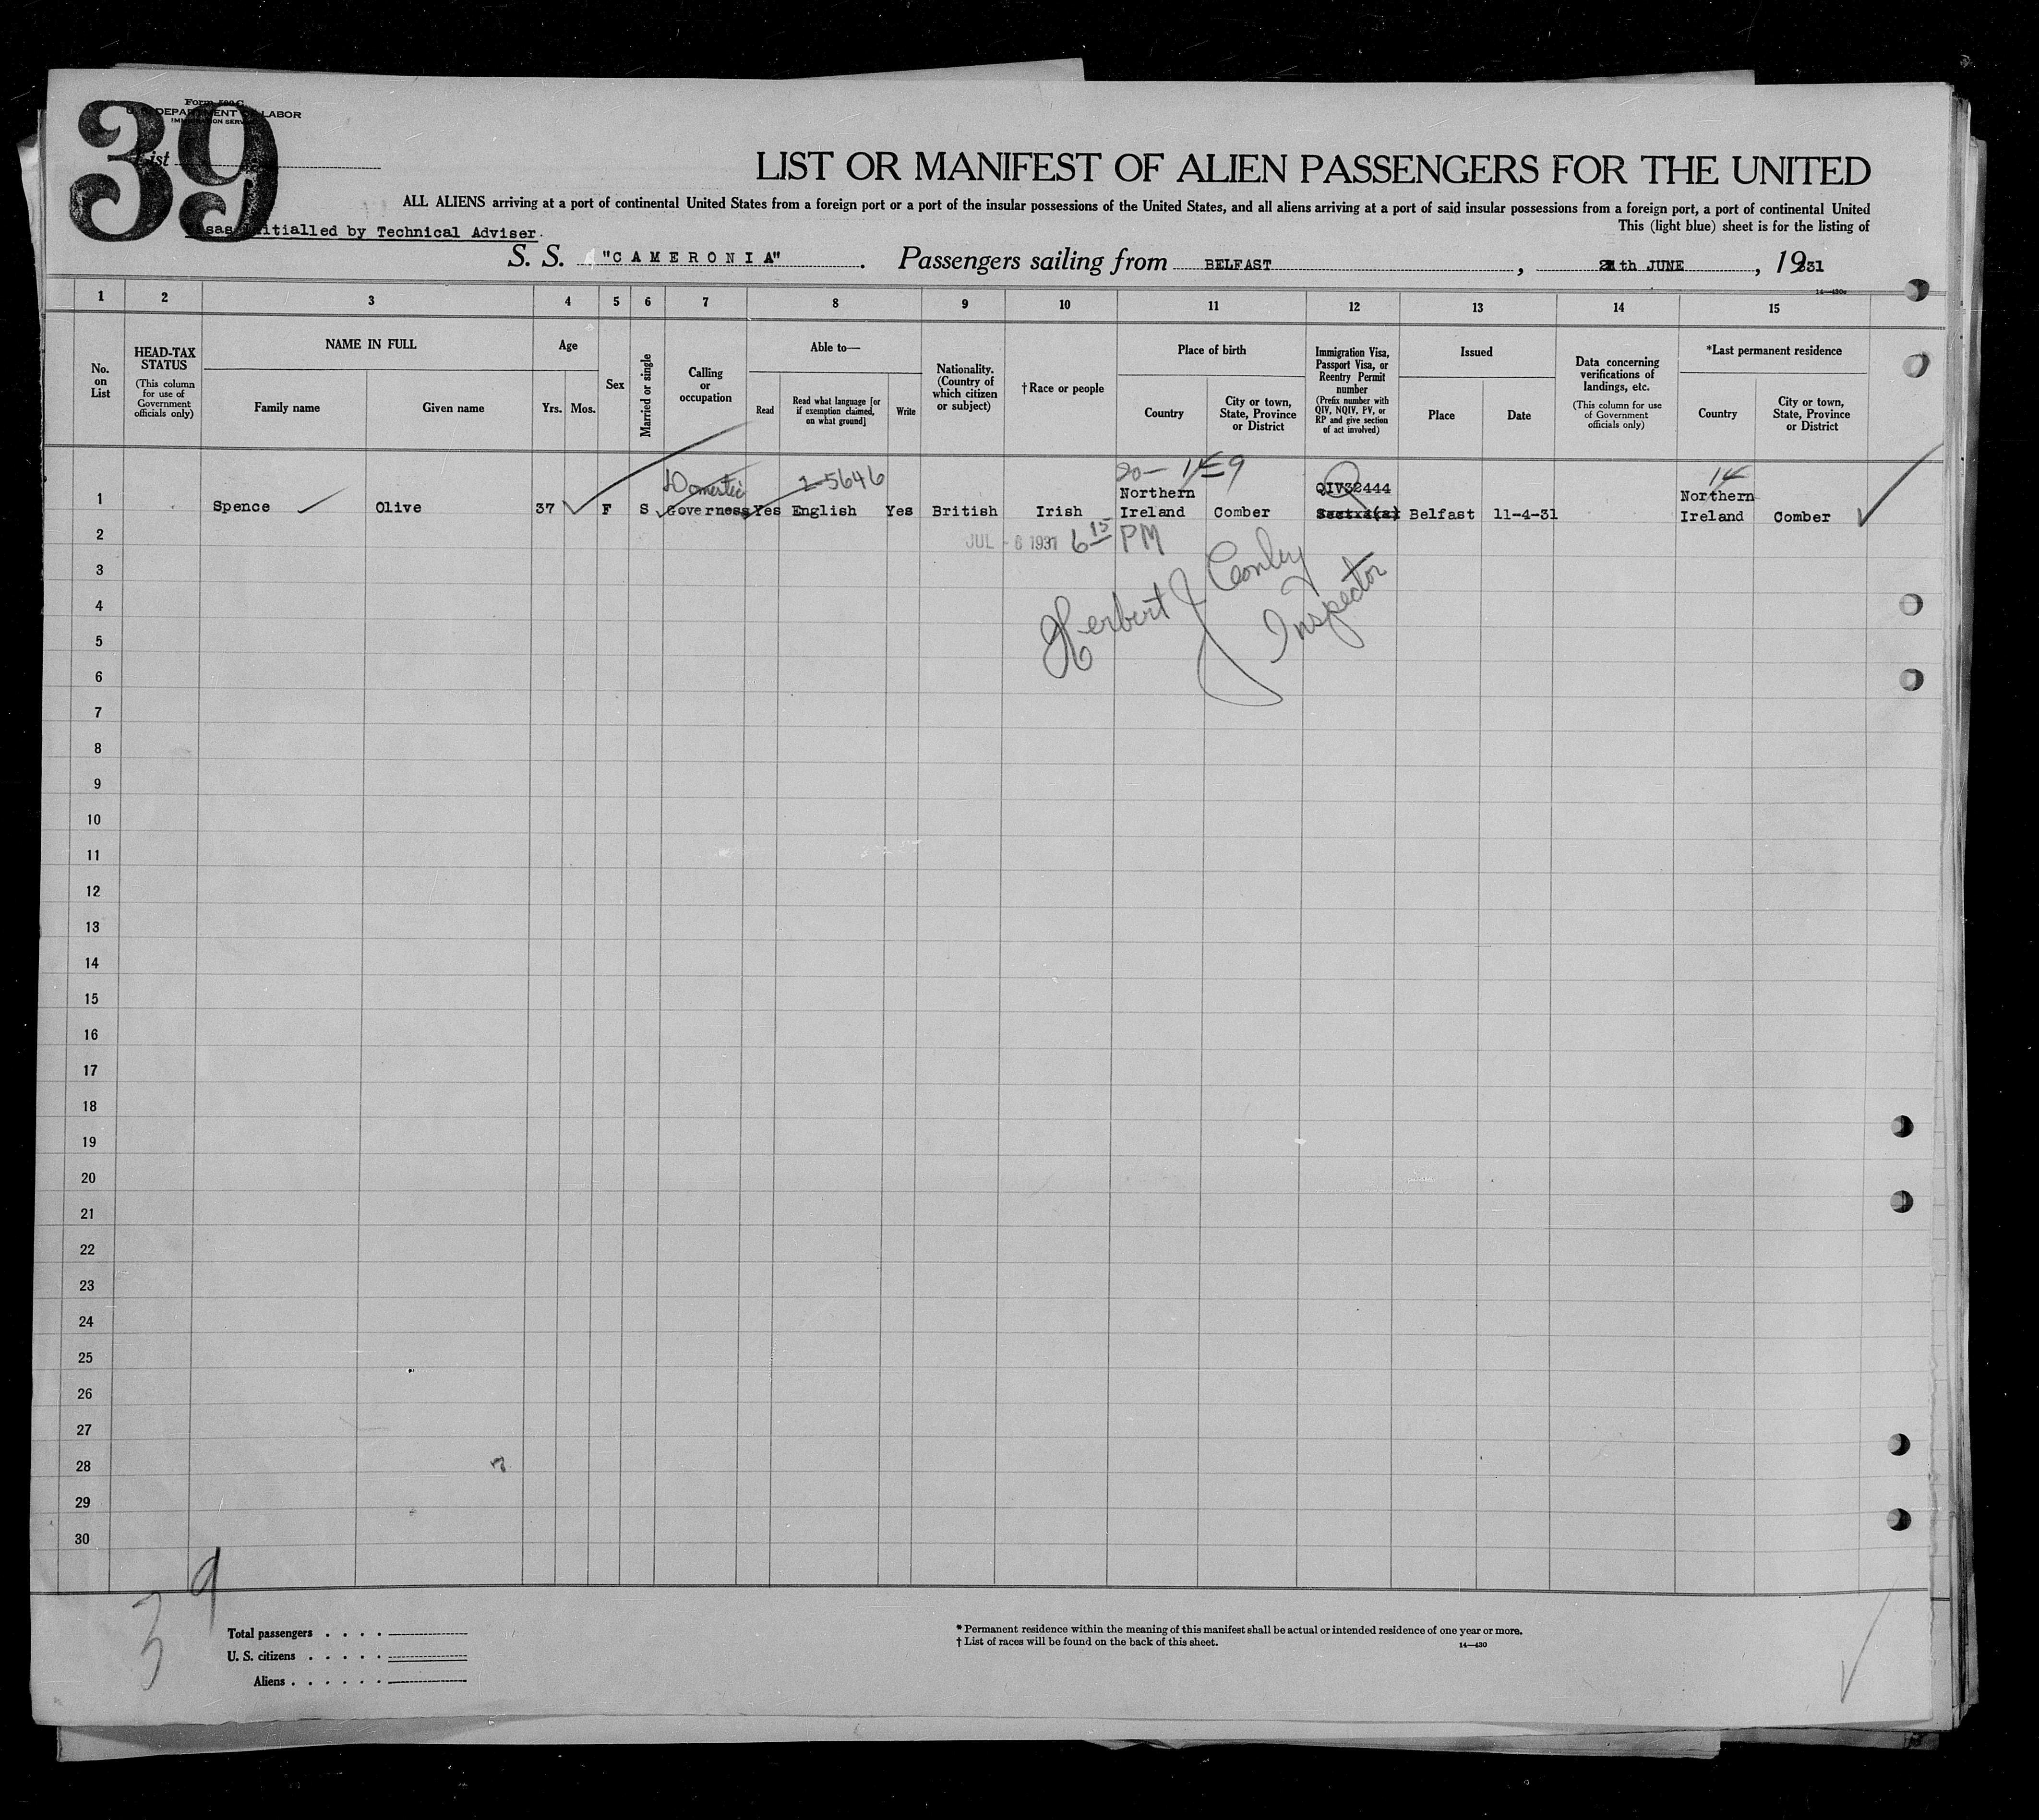 Form 500 C
U. S. DEPARTMENT OF LABOR
IMMIGRATION SERVICE
39
List
LIST OR MANIFEST OF ALIEN PASSENGERS FOR THE UNITED
ALL ALIENS arriving at a port of continental United States from a foreign port or a port of the insular possessions of the United States, and all aliens arriving at a port of said insular possessions from a foreign port, a port of continental United
This (light blue) sheet is for the listing of
Visas initialled by Technical Adviser.
S. S. "CAMERONIA". Passengers sailing from BELFAST, th JUNE, 1931
14—430c
1 2 3 4 5 6 7 8 9 10 11 12 13 14 15
No. on List
HEAD-TAX STATUS (This column for use of Government officials only)
NAME IN FULL
Family name
Given name
Age
Yrs. Mos.
Sex
Married or single
Calling or occupation
Able to—
Read
Read what language [or if exemption claimed, on what ground]
Write
Nationality. (Country of which citizen or subject)
†Race or people
Place of birth
Country
City or town, State, Province or District
Immigration Visa, Passport Visa, or Reentry Permit number (Prefix number with QIV, NQIV, PV, or RP and give section of act involved)
Issued
Place
Date
Data concerning verifications of landings, etc. (This column for use of Government officials only)
*Last permanent residence
Country
City or town, State, Province or District
Domestic 2-5646 14
1 Spence Olive 37 F S Governess Yes English Yes British Irish Northern Ireland Comber QIV32444 Belfast 11-4-31 Northern Ireland Comber
2 JUL - 6 1931 6 15 PM
3
Herbert J Conley
Inspector
4
5
6
7
8
9
10
11
12
13
14
15
16
17
18
19
20
21
22
23
24
25
26
27
28
29
30
39
Total passengers
U. S. citizens
Aliens
* Permanent residence within the meaning of this manifest shall be actual or intended residence of one year or more.
† List of races will be found on the back of this sheet.
14—430